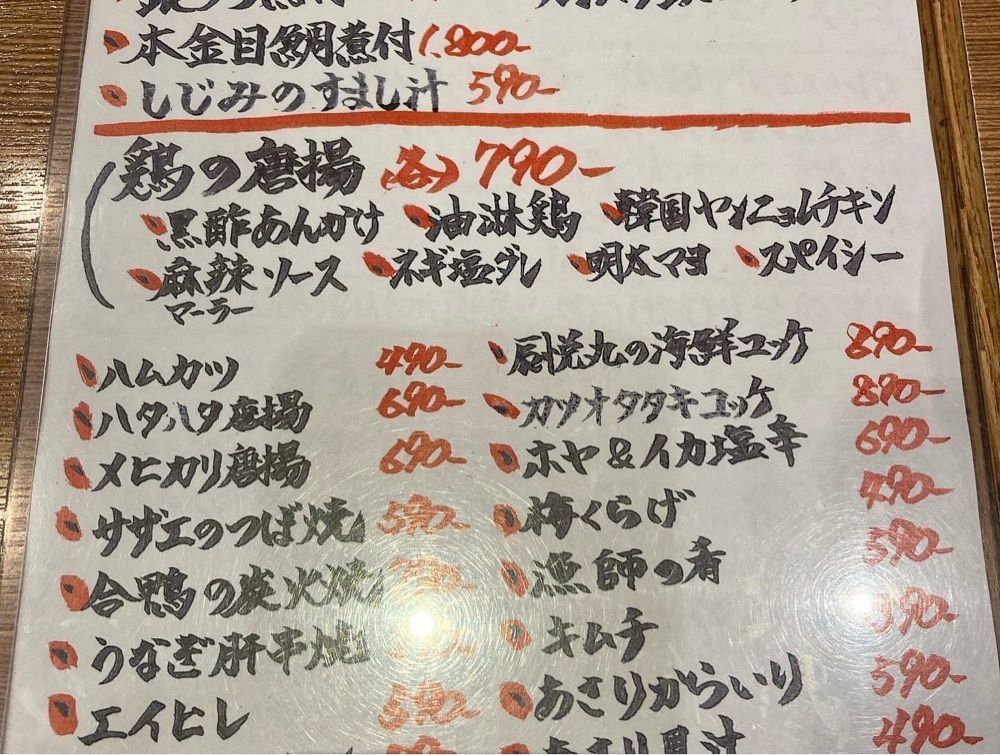 本金目鯛煮付 1,800-
しじみのすまし汁 590-
鶏の唐揚 (各) 790-
黒酢あんかけ 油淋鶏 韓国ヤンニョムチキン
麻辣ソース ネギ塩ダレ 明太マヨ スパイシー
マーラー
ハムカツ 490-
ハタハタ唐揚 690-
メヒカリ唐揚 690-
サザエのつぼ焼 590-
合鴨の炭火焼
うなぎ肝串焼
エイヒレ 590-
厨悦丸の海鮮ユッケ 890-
カツオタタキユッケ 890-
ホヤ&イカ塩辛 690-
梅くらげ 490-
漁師の肴 590-
キムチ 390-
あさりがらいり 590-
490-